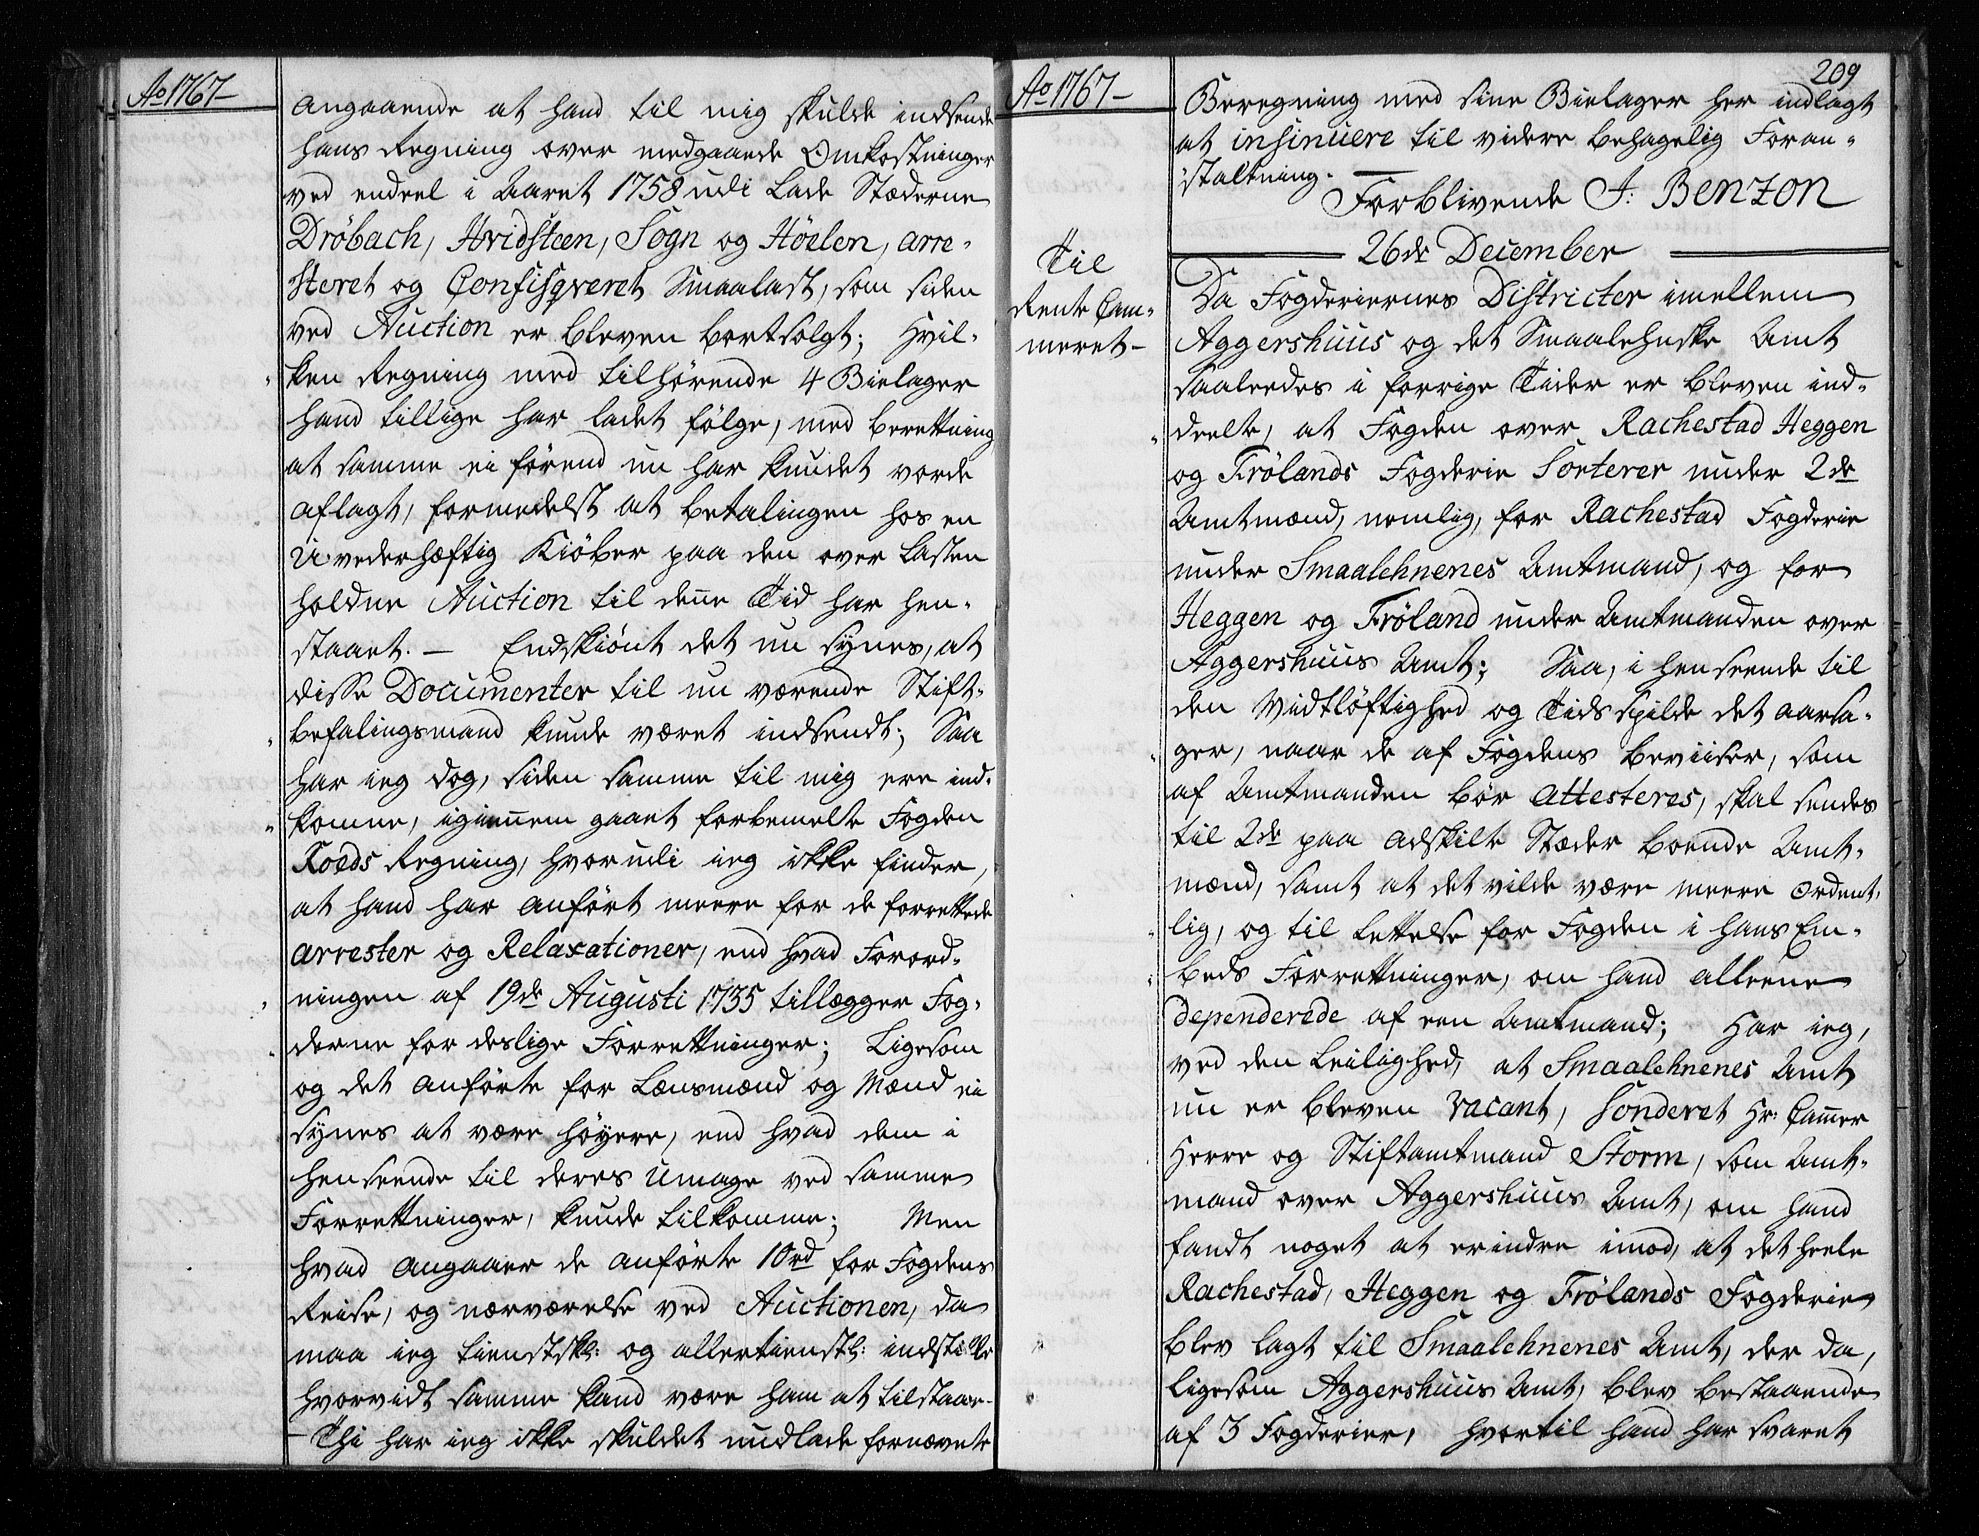 Ao 1767-
angaaende at hand til mig skulde indsende
hans Regning over medgaaede Omkostninger
ved endeel i Aaret 1758 udi Lade Stæderne
Dröbach, Hvidsteen, Sogn og Höelen, arre-
steret og Confisqveret Smaalast, som siden
ved Auction er bleven bortsolgt; Hvil-
ken Regning med tilhørende 4 Bielager
hand tillige har ladet fölge, med beretning
at samme ei förend nu har kundet vorde
aflagt, formedelst at betalingen hos en
U-vederhæftig Kiöber paa den over Lasten
holdne Auction til denne Tid har hen-
staaet. — Endskiönt det nu synes, at
disse Documenter til nu værende Stift-
befalingsmand kunde været indsendt; Saa
har ieg dog, siden samme til mig ere ind-
komne, igiennem gaaet forbemelte Fogden
Koeds Regning, hvorudi ieg ikke finder,
at hand har anfört meere for de forrettede
arrester og Relaxationer, end hvad Forord-
ningen af 19de Augusti 1735 tillægger Fog-
derne for deslige Forrettninger; Ligesom
og det anförte for Lænsmænd og Mænd ei
synes at være höyere, end hvad dem i
henseende til deres Umage ved samme
Forrettninger, kunde tilkomme; Men
hvad angaaer de anförte 10rd for Fogdens
Reise, og nærværelse ved Auctionen, da
maa ieg tienstskl: og allertienstl: indstille
hvorvidt samme kand være ham at tilstaae.
- Thi har ieg ikke skuldet undlade fornævnte
Ao 1767-
209
Beregning med sine Bielager her indlagt
at insinuere til videre behagelig Foran-
staltning.
Forblivende J: Benzon
26de December
Til
Rente Cam-
meret-
Da Fogderiernes Districter imellem
Aggershuus og det Smaalehnske Amt
saaledes i forrige Tider er bleven ind-
deelte, at Fogden over Rachestad Heggen
og Frölands Fogderie Sorterer under 2de
Amtmænd, nemlig, for Rachestad Fogderie
under Smaalehnenes Amtmand, og for
Heggen og Fröland under Amtmanden over
Aggershuus Amt; Saa, i henseende til
den Vidtlöftighed og Tids spilde det aarsa-
ger, naar de af Fogdens beviiser, som
af Amtmanden bör attesteres, skal sendes
til 2de paa adskilte Stæder boende Amt-
mænd, samt at det vilde være meere ordent-
lig, og til Lettelse for Fogden i hans Em-
beds Forrettninger, om hand alleene
dependerede af een Amtmand; Har ieg,
ved den Leilighed, at Smaalehnenes Amt
nu er bleven vacant, Sonderet Hr: Camer
Herre og Stiftamtmand Storm, som Amt-
mand over Aggershuus Amt, om hand
fandt noget at erindre imod, at det heele
Rachestad, Heggen og Frölands Fogderie
blev lagt til Smaalehnenes Amt, der da,
ligesom Aggershuus Amt, blev bestaaende
af 3 Fogderier, hvortil hand har svaret